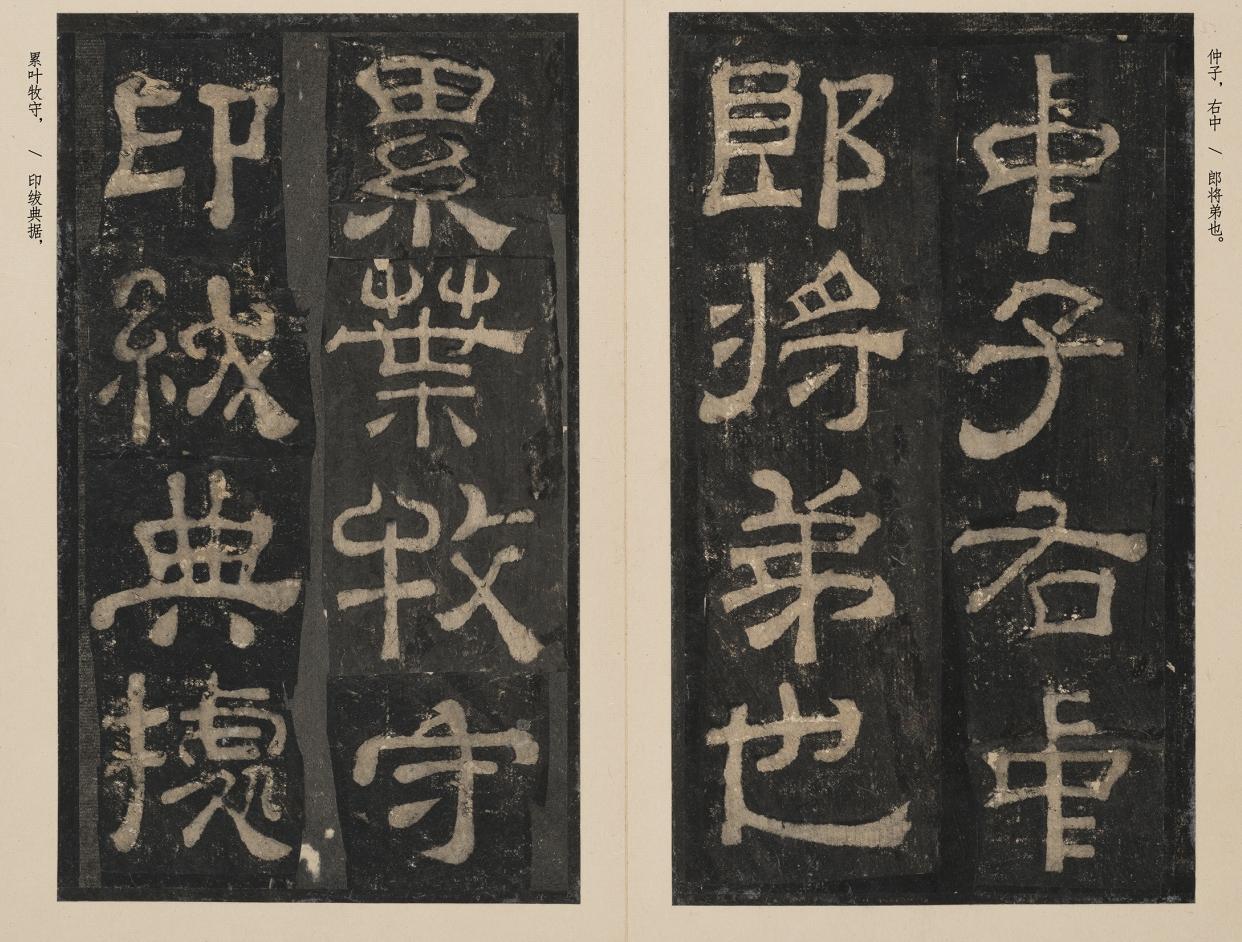 仲子，右中／郎将弟也。
中子右中
郎將弟也
累葉牧守
印紱典據
累叶牧守，／印绂典据，